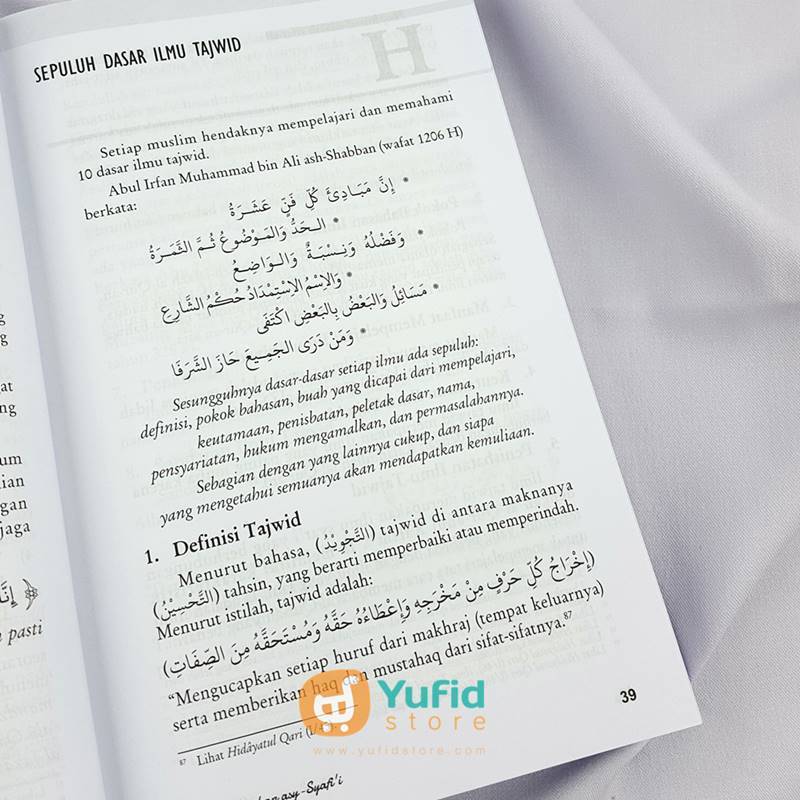 g
g
gat
ng
um
ian
gan
jaga
إِنَّ
n pasti
SEPULUH DASAR ILMU TAJWID
H
Setiap muslim hendaknya mempelajari dan memahami
10 dasar ilmu tajwid.
Abul Irfan Muhammad bin Ali ash-Shabban (wafat 1206 H)
berkata:
• إِنَّ مَبَادِئَ كُلِّ فَنٍّ عَشَرَةُ
• الحَدُّ وَالمَوْضُوعُ ثُمَّ الثَّمَرَةُ
• وَفَضْلُهُ وَنِسْبَةٌ وَالوَاضِعُ
• وَالِاسْمُ الِاسْتِمْدَادُ حُكْمُ الشَّارِعِ
• مَسَائِلٌ وَالبَعْضُ بِالبَعْضِ اكْتَفَى
• وَمَنْ دَرَى الجَمِيعَ حَازَ الشَّرَفَا
Sesungguhnya dasar-dasar setiap ilmu ada sepuluh:
definisi, pokok bahasan, buah yang dicapai dari mempelajari,
keutamaan, penisbatan, peletak dasar, nama,
pensyariatan, hukum mengamalkan, dan permasalahannya.
Sebagian dengan yang lainnya cukup, dan siapa
yang mengetahui semuanya akan mendapatkan kemuliaan.
1. Definisi Tajwid
Menurut bahasa, (التَّجْوِيْدُ) tajwid di antara maknanya
(التَّحْسِيْنُ) tahsin, yang berarti memperbaiki atau memperindah.
Menurut istilah, tajwid adalah:
(إِخْرَاجُ كُلِّ حَرْفٍ مِنْ مَخْرَجِهِ وَإِعْطَاءُهُ حَقَّهُ وَمُسْتَحَقَّهُ مِنَ الصِّفَاتِ)
“Mengucapkan setiap huruf dari makhraj (tempat keluarnya)
serta memberikan haq dan mustahaq dari sifat-sifatnya.87
87 Lihat Hidâyatul Qari (1/45).
39
asy-Syafi'i
Yufid
store
www.yufidstore.com